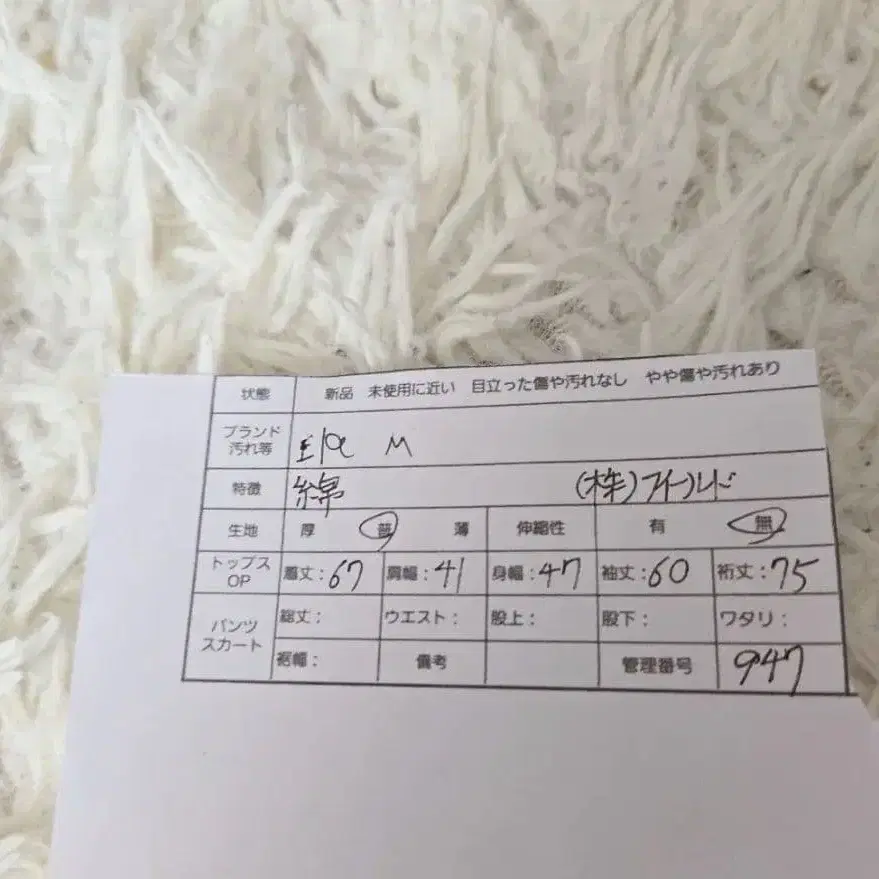 状態 新品 未使用に近い 目立った傷や汚れなし やや傷や汚れあり
ブランド
汚れ等 M
特徴 綿 (株)フィールド
生地 厚 普 薄 伸縮性 有 無
トップス
OP 着丈:67 肩幅:41 身幅:47 袖丈:60 裄丈:75
パンツ
スカート
総丈: ウエスト: 股上: 股下: ワタリ:
裾幅: 備考 管理番号 947